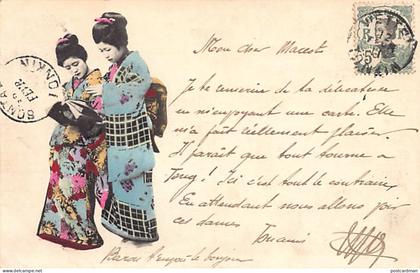 Mon cher Maceste
Je te remercie de ta délicatesse
en m'envoyant une carte. Elle
m'a fait réellement plaisir.
Il paraît que tout tourne à
Ici c'est tout le contraire,
En attendant nous allons voir
ces dames
Ton ami
Baron t'envoie le bonjour
SONTAY
TONKIN